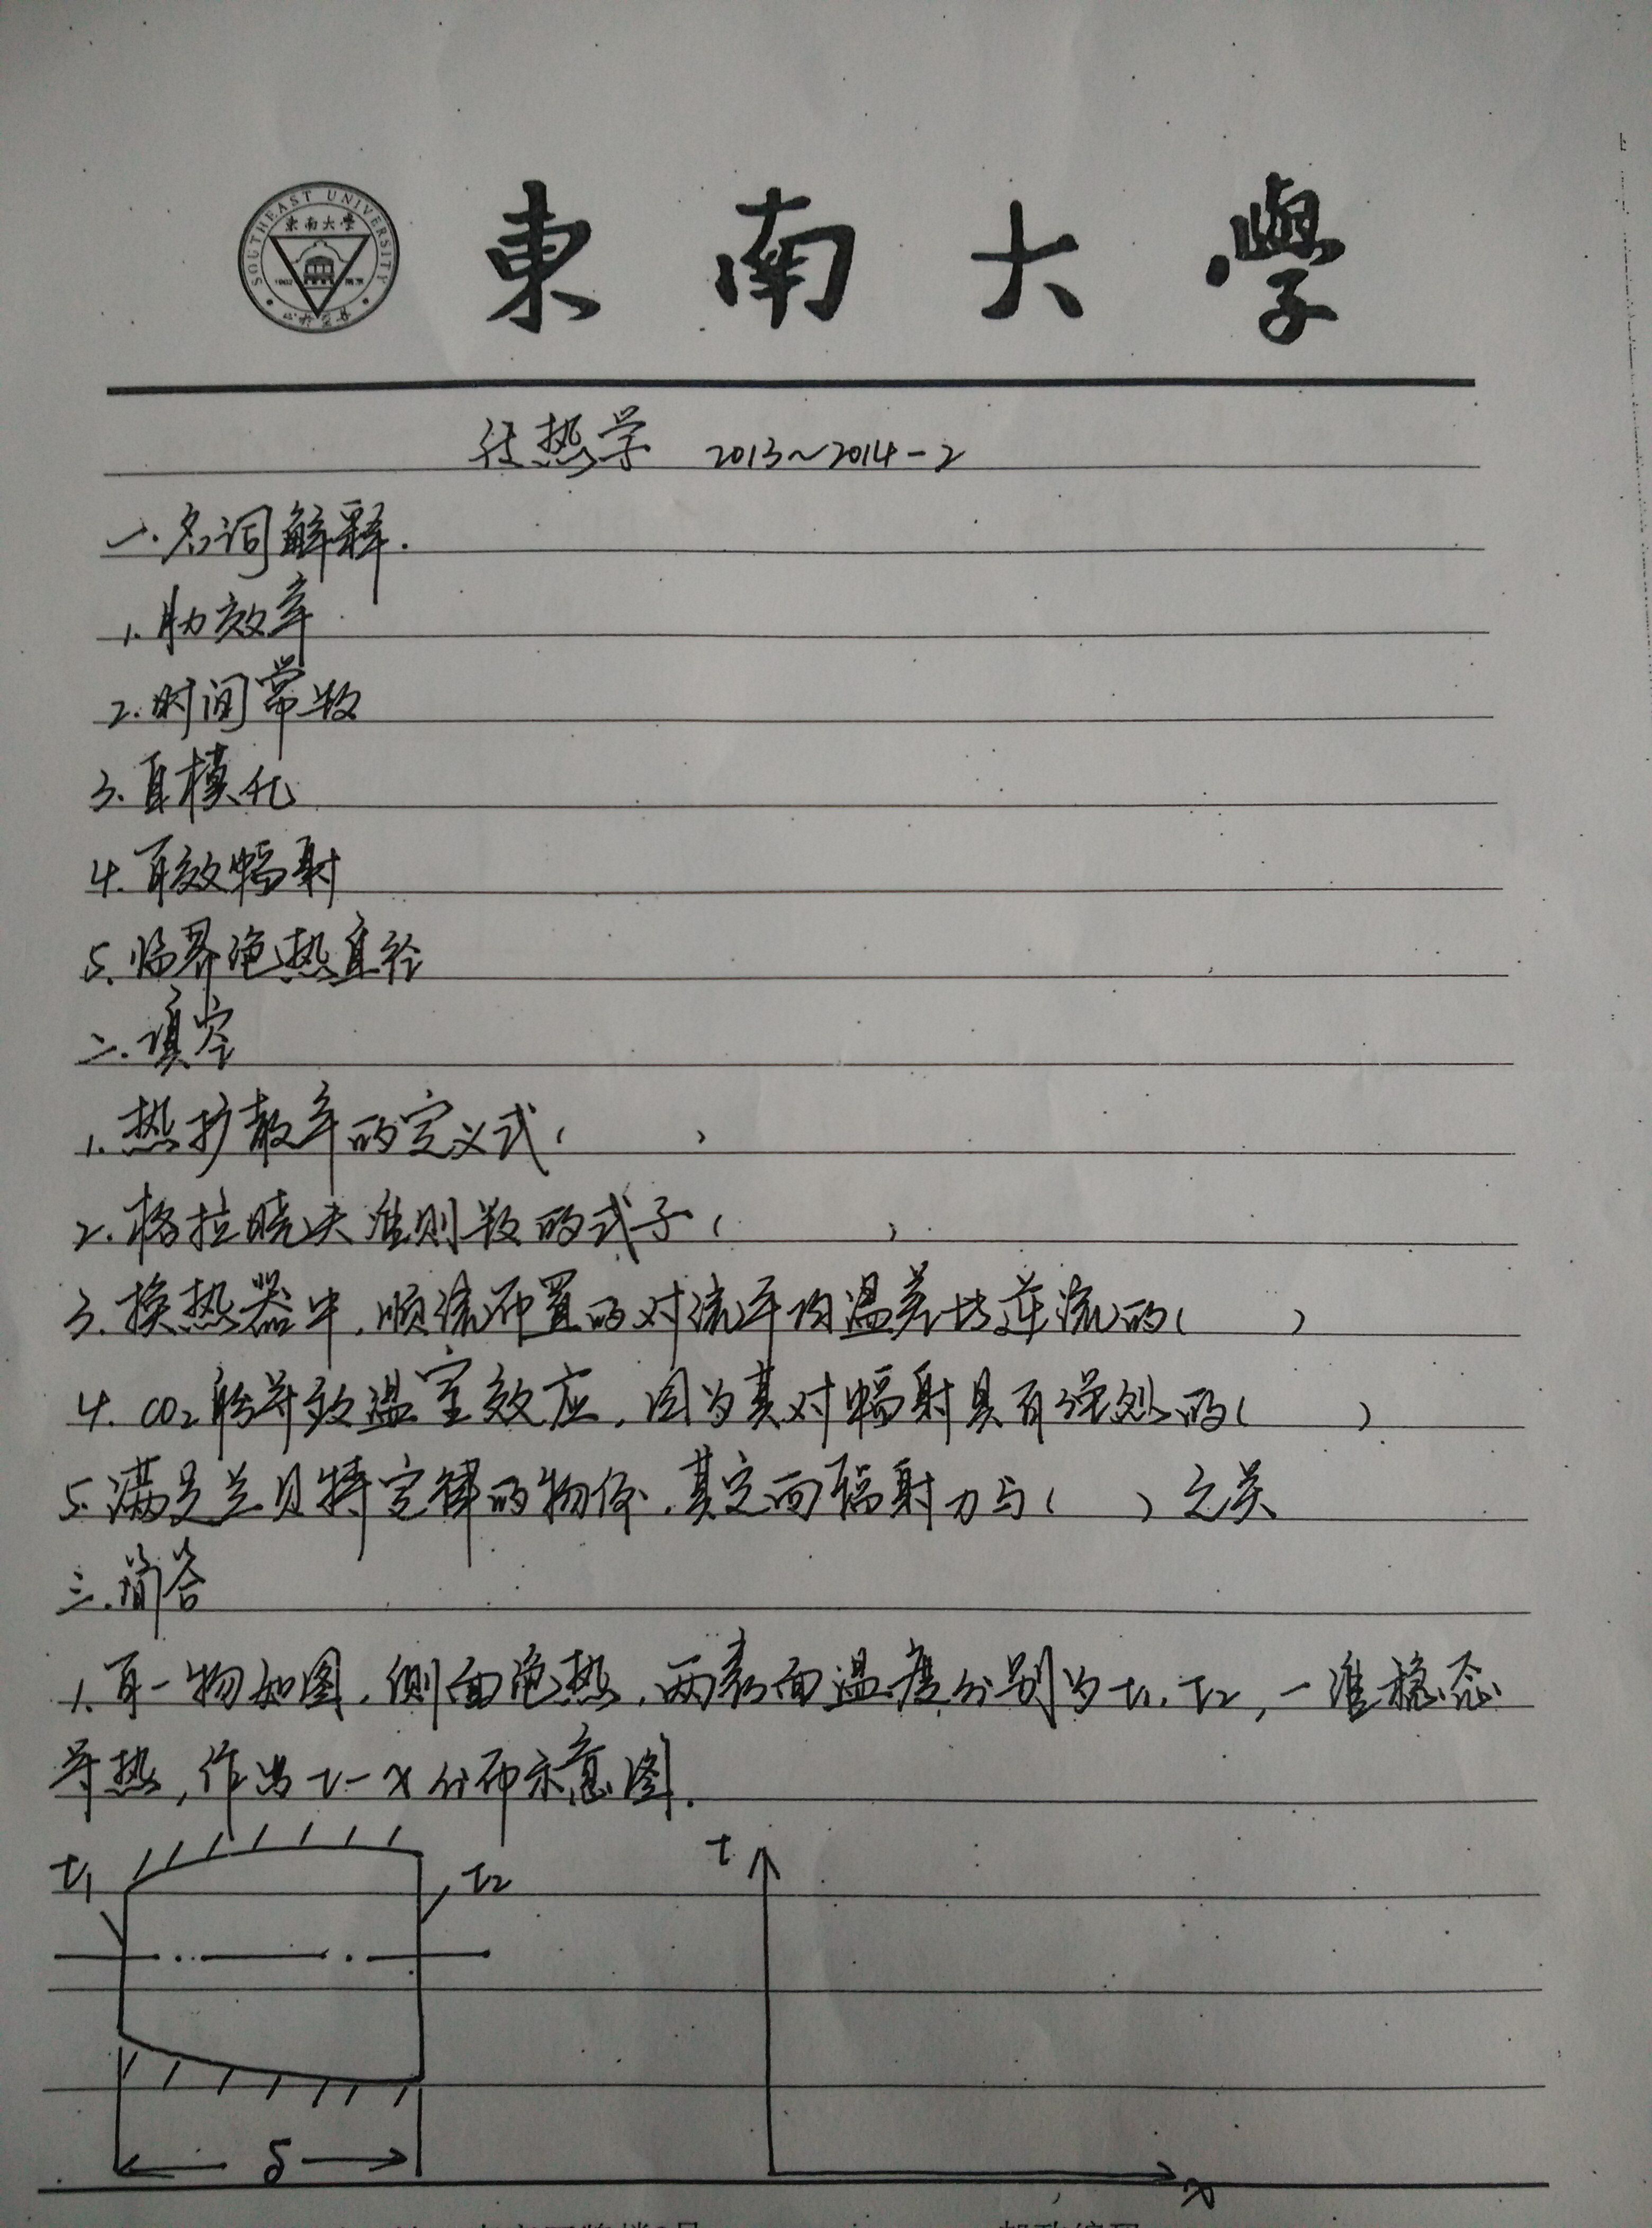 SOUTHEAST UNIVERSITY
東南大學
1902 南京
東南大學
传热学 2013~2014-2
一.名词解释.
1.肋效率
2.时间常数
3.自模化
4.有效辐射
5.临界绝热直径
二.填空
1.热扩散率的定义式( )
2.格拉晓夫准则数的式子( )
3.换热器中,顺流布置的对流平均温差比逆流的( )
4.CO2能导致温室效应,因为其对辐射具有强烈的( )
5.满足兰贝特定律的物体,其定向辐射力与( )无关
三.简答
1.有一物如图,侧面绝热,两表面温度分别为t1,t2,一维稳态
导热,作出t-x分布示意图.
t1 t2 t
δ x